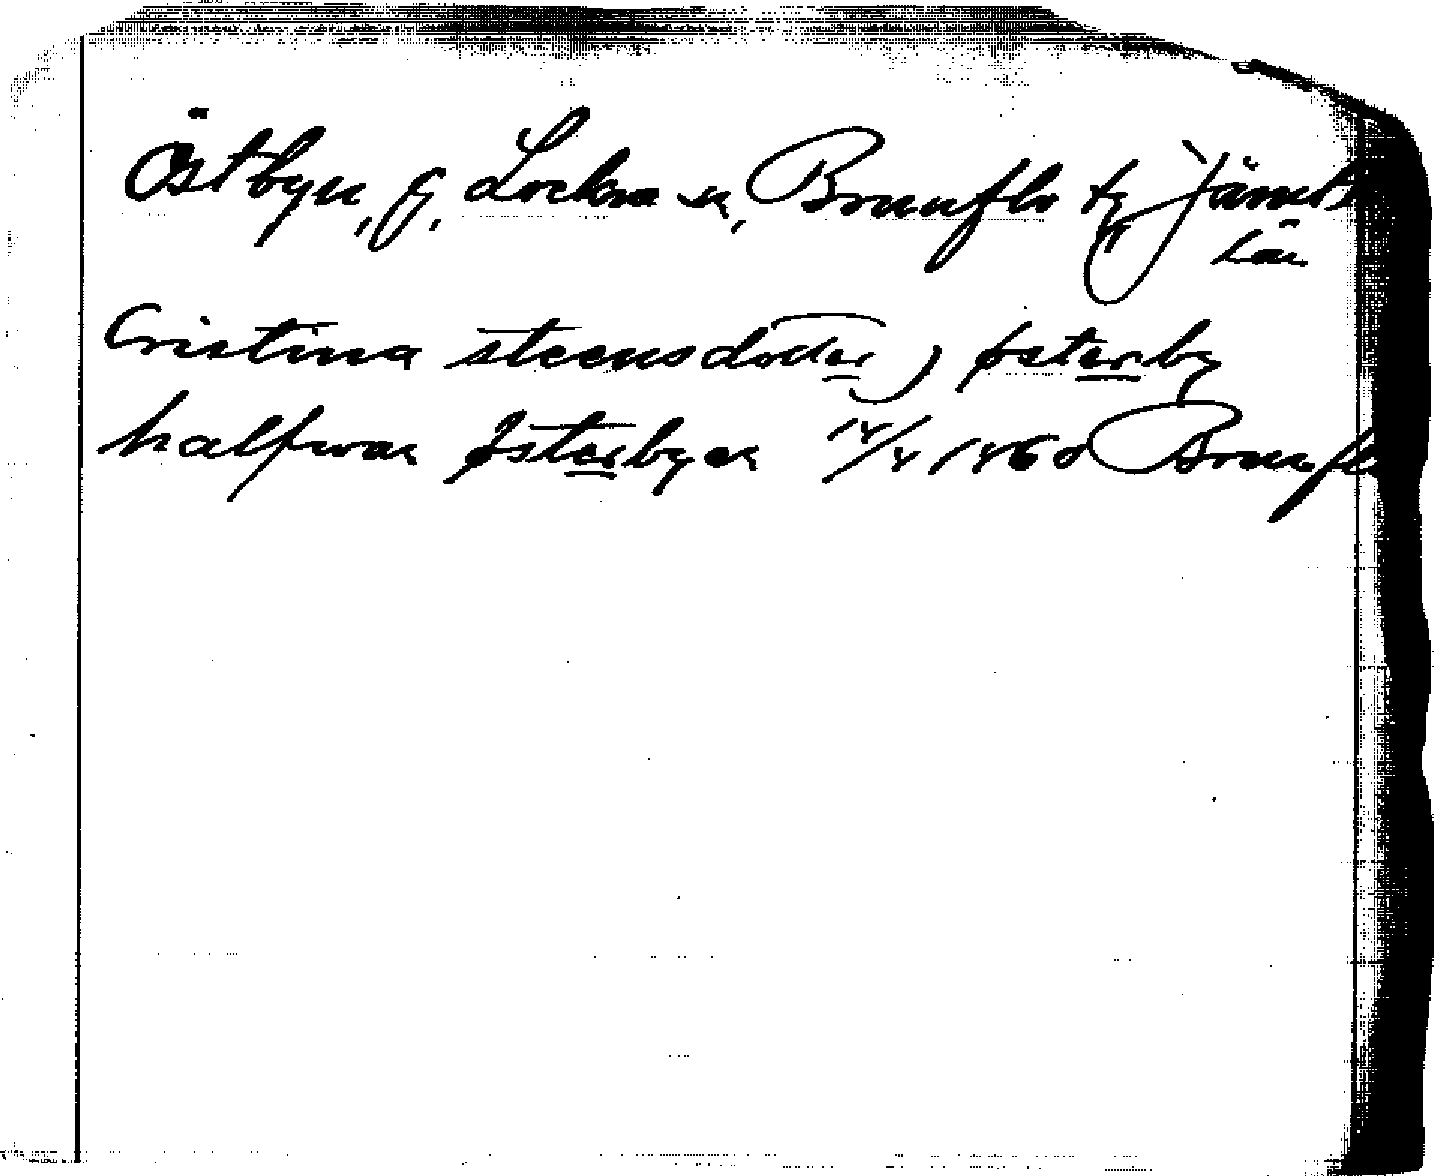 Östbyn, f, Lockne sn, Brunflo tg Jämtl
län
Cristina steensdotter j østerby
halfwar østerbyen 14/4 1460 Brunflo